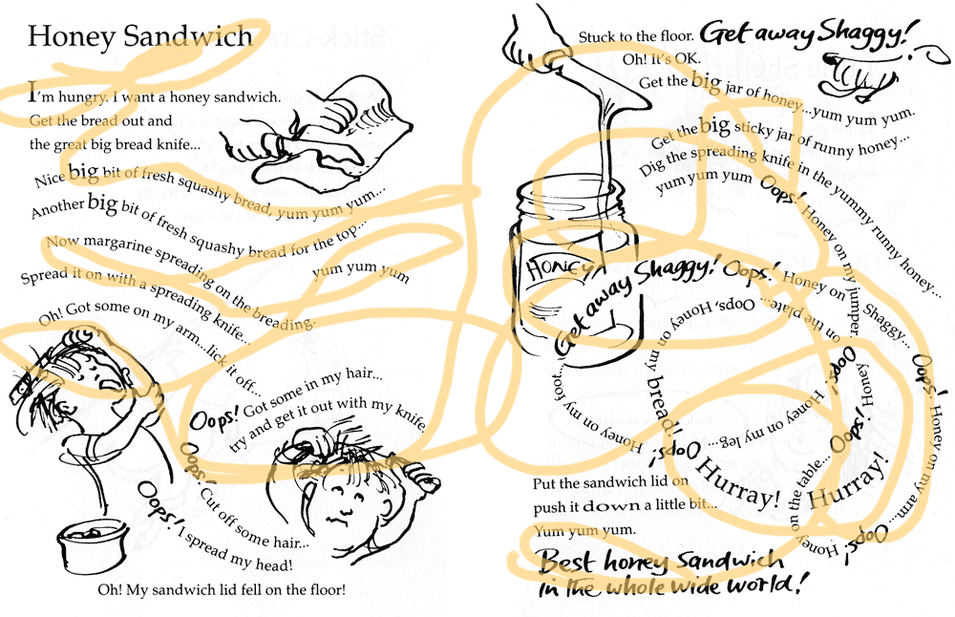 Honey Sandwich
I'm hungry. I want a honey sandwich.
Get the bread out and
the great big bread knife...
Nice big bit of fresh squashy bread, yum yum yum...
Another big bit of fresh squashy bread for the top...
yum yum yum
Now margarine spreading on the breading.
Spread it on with a spreading knife...
Oh! Got some on my arm...lick it off...
Oops! Got some in my hair...
try and get it out with my knife.
Oops! Cut off some hair...
Oops! I spread my head!
Oh! My sandwich lid fell on the floor!
Stuck to the floor. Get away Shaggy!
Oh! It's OK.
Get the big jar of honey...yum yum yum.
Get the big sticky jar of runny honey...
Dig the spreading knife in the yummy runny honey...
yum yum yum Oops! Honey on my jumper.
Oops! Honey on my leg...
Oops! Honey on my foot.
HONEY!
Get away Shaggy! Oops! Honey on Shaggy...
Oops! Honey on my arm...
Oops! Honey on the table...
Oops! Honey on the plate...
Oops, Honey on my bread!
Hurray! Hurray!
Put the sandwich lid on
push it down a little bit...
Yum yum yum.
Best honey sandwich
in the whole wide world!